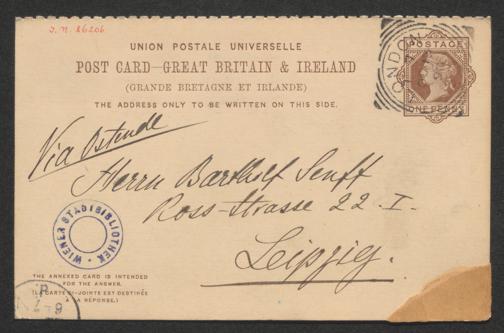 I. N. 26206
UNION POSTALE UNIVERSELLE
POST CARD—GREAT BRITAIN & IRELAND
(GRANDE BRETAGNE ET IRLANDE)
THE ADDRESS ONLY TO BE WRITTEN ON THIS SIDE.
LONDON
POSTAGE
ONE PENNY
Via Ostende
Herrn Bartholf Senff
Ross-Strasse 22. I.
Leipzig.
WIENER STADTBIBLIOTHEK
THE ANNEXED CARD IS INTENDED
FOR THE ANSWER.
(LA CARTE CI-JOINTE EST DESTINÉE
À LA RÉPONSE.)